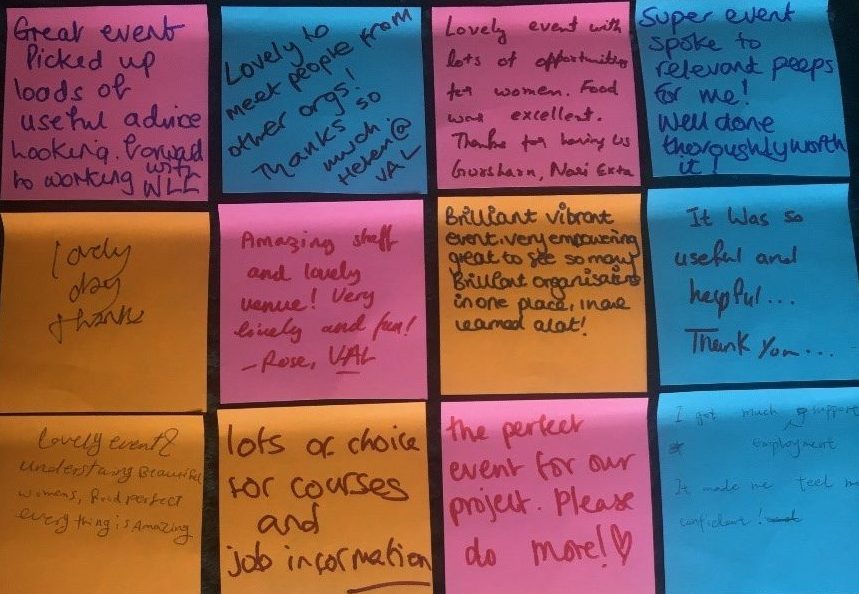 Great event
Picked up
loads of
useful advice
Looking forward
to working with
WLL
Lovely to
meet people from
other orgs!
Thanks so
much.
Helen @
VAL
Lovely event with
lots of opportunities
for women. Food
was excellent.
Thanks for having us
Gursharn, Nari Ekta
Super event
spoke to
relevant peeps
for me!
Well done
thoroughly worth
it!
lovely
day
thanks
Amazing staff
and lovely
venue! Very
lively and fun!
- Rose, VAL
Brilliant vibrant
event, very empowering
great to see so many
Brilliant organisations
in one place,
learned alot!
It was so
useful and
helpful...
Thank you...
Lovely event
understanding Beautiful
womens, food perfect
everything is Amazing
lots of choice
for courses
and
job information
the perfect
event for our
project. Please
do more! ♡
I got much support
employment
It made me feel
confident!